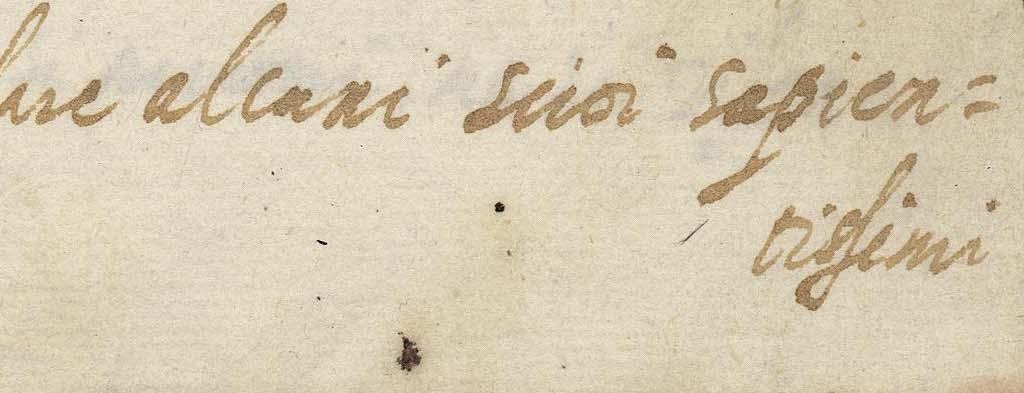 alcuni suoi sapien=
tissimi